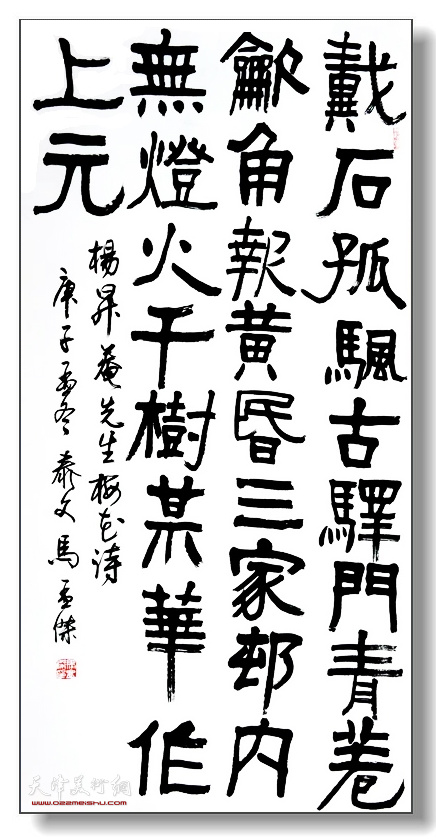 戴石孤颿古驛門青菴
龡角報黃昬三家邨內
無燈火千樹某華作
上元
楊昇菴先生梅花詩
庚子孟冬 馬孟傑
天津美术网
www.022meishu.com